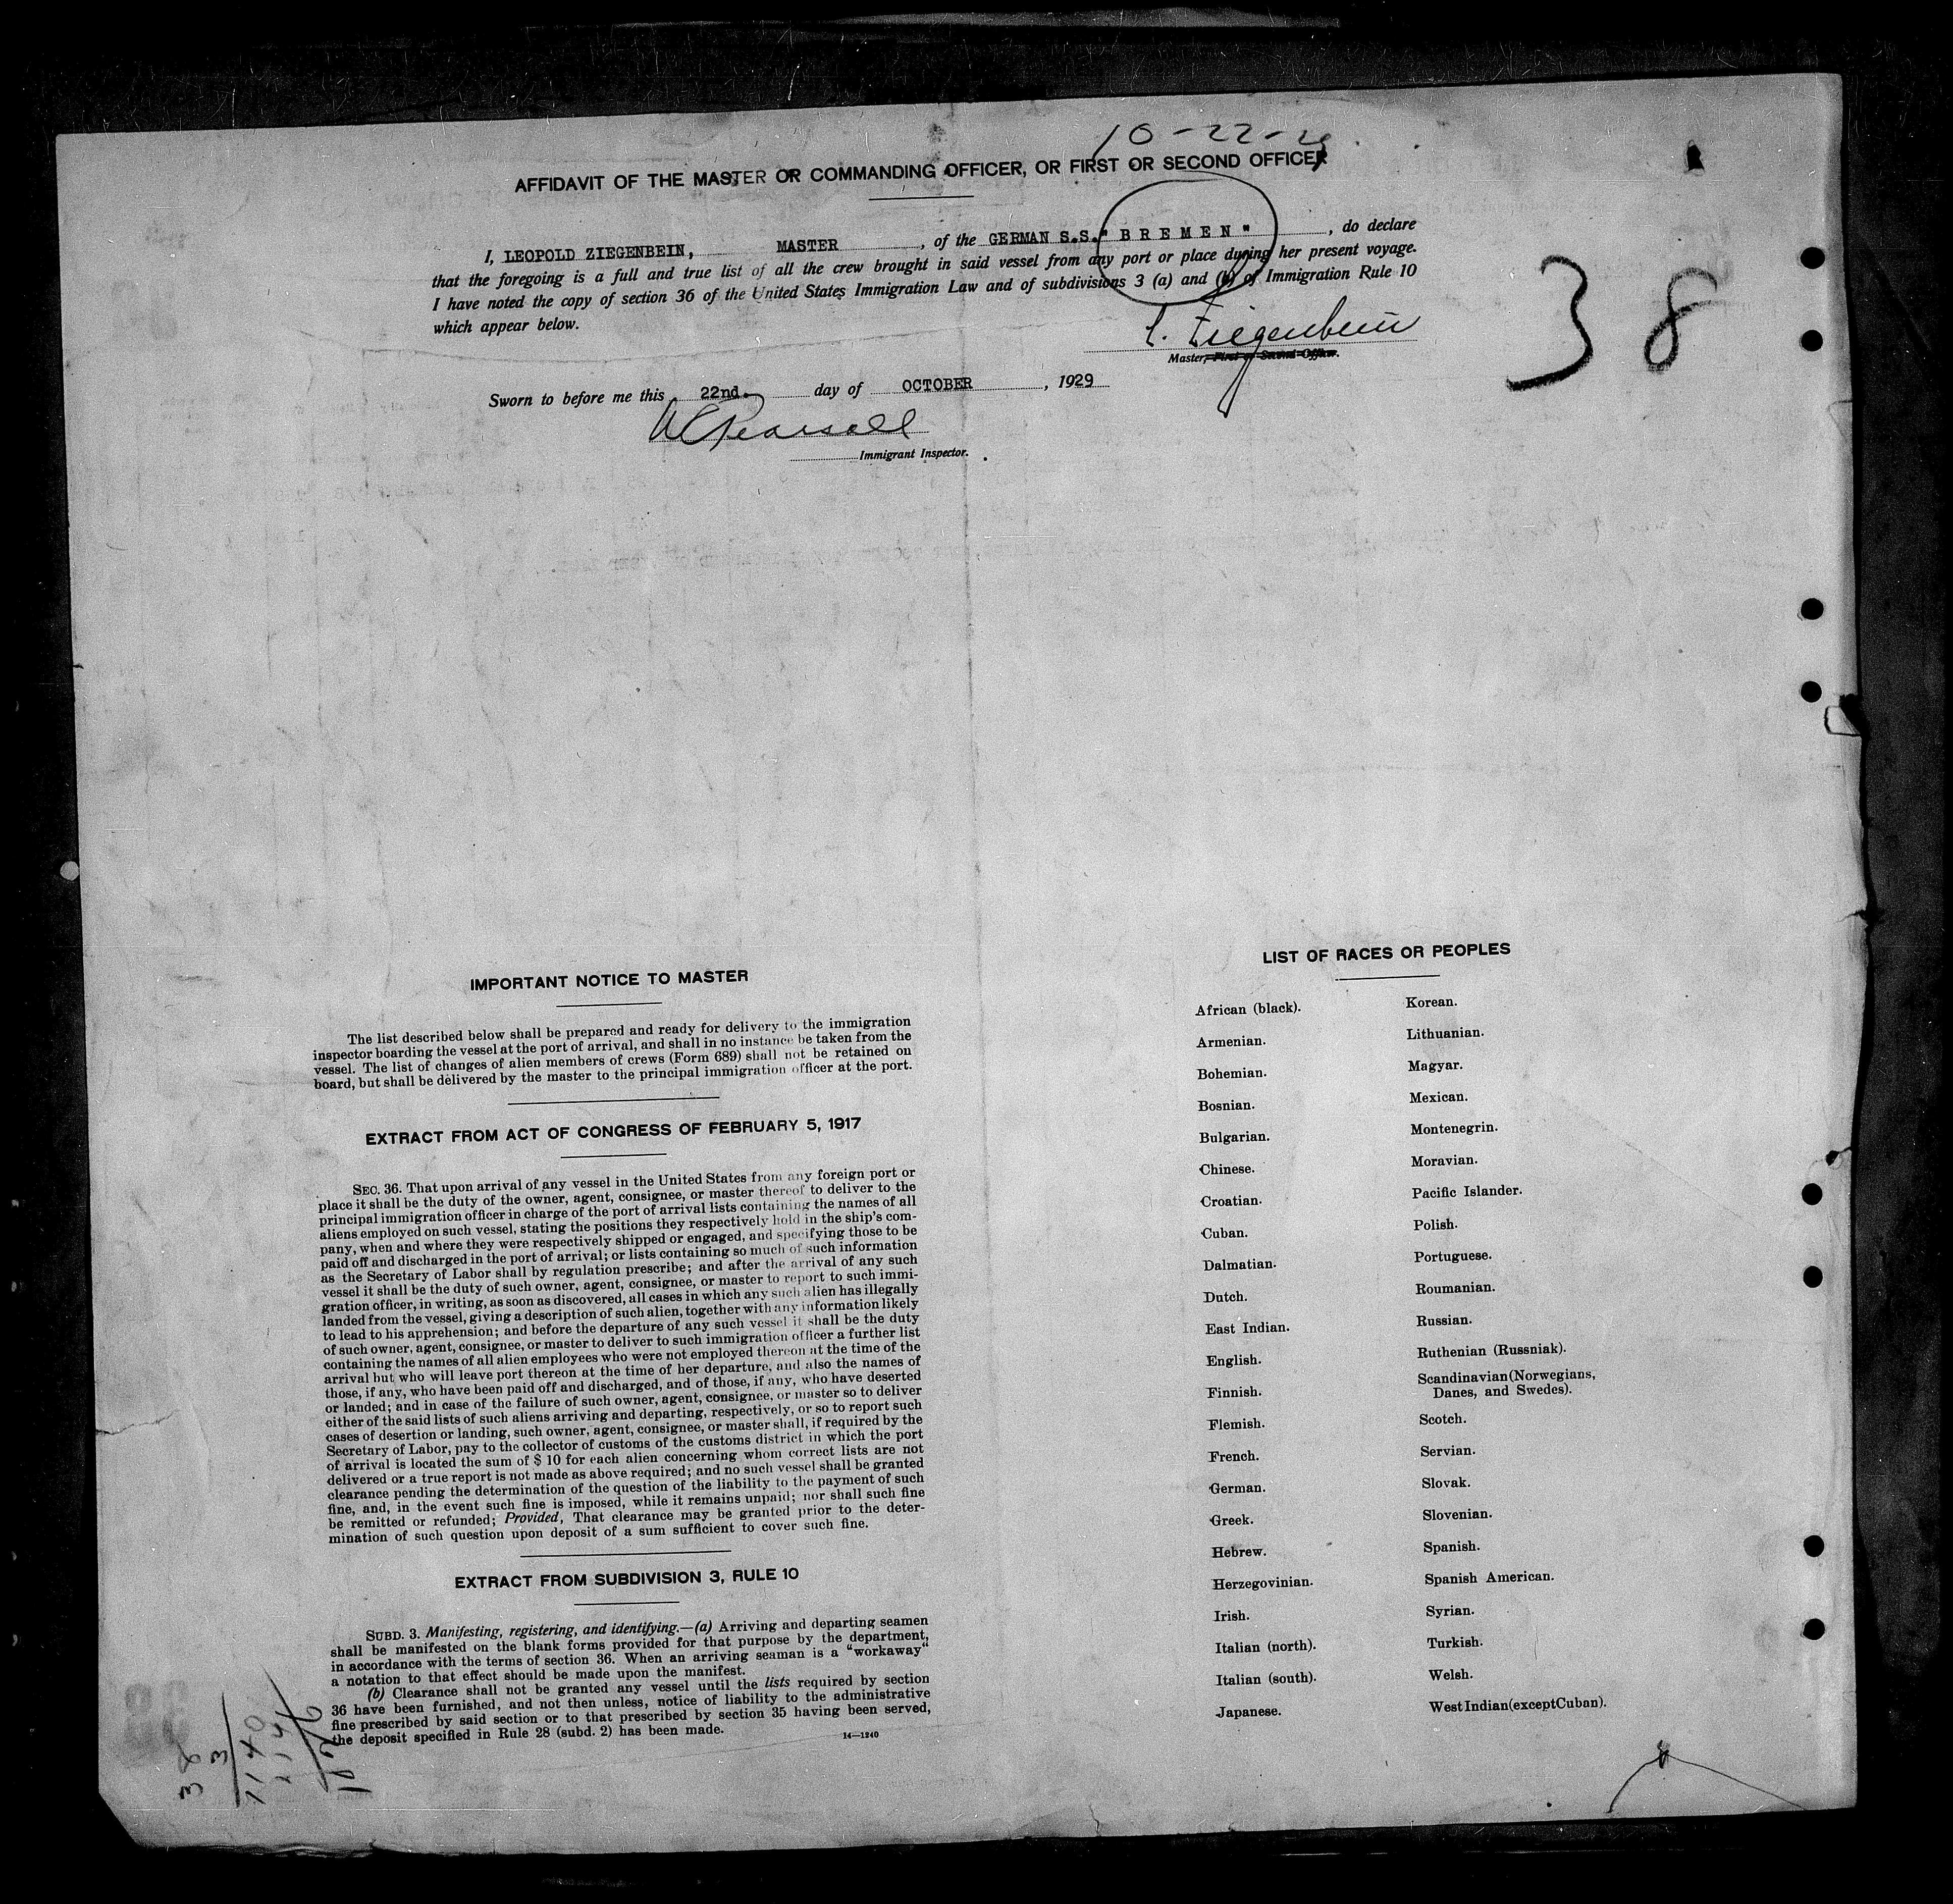 10-22-29
AFFIDAVIT OF THE MASTER OR COMMANDING OFFICER, OR FIRST OR SECOND OFFICER
I, LEOPOLD ZIEGENBEIN, MASTER, of the GERMAN S.S." B R E M E N ", do declare
that the foregoing is a full and true list of all the crew brought in said vessel from any port or place during her present voyage.
I have noted the copy of section 36 of the United States Immigration Law and of subdivisions 3 (a) and (b) of Immigration Rule 10
which appear below.
L. Ziegenbein
Master, First or Second Officer.
38
Sworn to before me this 22nd. day of OCTOBER, 1929
W C Pearsall
Immigrant Inspector.
IMPORTANT NOTICE TO MASTER
The list described below shall be prepared and ready for delivery to the immigration
inspector boarding the vessel at the port of arrival, and shall in no instance be taken from the
vessel. The list of changes of alien members of crews (Form 689) shall not be retained on
board, but shall be delivered by the master to the principal immigration officer at the port.
EXTRACT FROM ACT OF CONGRESS OF FEBRUARY 5, 1917
SEC. 36. That upon arrival of any vessel in the United States from any foreign port or
place it shall be the duty of the owner, agent, consignee, or master thereof to deliver to the
principal immigration officer in charge of the port of arrival lists containing the names of all
aliens employed on such vessel, stating the positions they respectively hold in the ship's com-
pany, when and where they were respectively shipped or engaged, and specifying those to be
paid off and discharged in the port of arrival; or lists containing so much of such information
as the Secretary of Labor shall by regulation prescribe; and after the arrival of any such
vessel it shall be the duty of such owner, agent, consignee, or master to report to such immi-
gration officer, in writing, as soon as discovered, all cases in which any such alien has illegally
landed from the vessel, giving a description of such alien, together with any information likely
to lead to his apprehension; and before the departure of any such vessel it shall be the duty
of such owner, agent, consignee, or master to deliver to such immigration officer a further list
containing the names of all alien employees who were not employed thereon at the time of the
arrival but who will leave port thereon at the time of her departure, and also the names of
those, if any, who have been paid off and discharged, and of those, if any, who have deserted
or landed; and in case of the failure of such owner, agent, consignee, or master so to deliver
either of the said lists of such aliens arriving and departing, respectively, or so to report such
cases of desertion or landing, such owner, agent, consignee, or master shall, if required by the
Secretary of Labor, pay to the collector of customs of the customs district in which the port
of arrival is located the sum of $ 10 for each alien concerning whom correct lists are not
delivered or a true report is not made as above required; and no such vessel shall be granted
clearance pending the determination of the question of the liability to the payment of such
fine, and, in the event such fine is imposed, while it remains unpaid; nor shall such fine
be remitted or refunded; Provided, That clearance may be granted prior to the deter-
mination of such question upon deposit of a sum sufficient to cover such fine.
EXTRACT FROM SUBDIVISION 3, RULE 10
SUBD. 3. Manifesting, registering, and identifying.—(a) Arriving and departing seamen
shall be manifested on the blank forms provided for that purpose by the department,
in accordance with the terms of section 36. When an arriving seaman is a "workaway"
a notation to that effect should be made upon the manifest.
(b) Clearance shall not be granted any vessel until the lists required by section
36 have been furnished, and not then unless, notice of liability to the administrative
fine prescribed by said section or to that prescribed by section 35 having been served,
the deposit specified in Rule 28 (subd. 2) has been made.
14—1240
38
3
1140
LIST OF RACES OR PEOPLES
African (black).
Armenian.
Bohemian.
Bosnian.
Bulgarian.
Chinese.
Croatian.
Cuban.
Dalmatian.
Dutch.
East Indian.
English.
Finnish.
Flemish.
French.
German.
Greek.
Hebrew.
Herzegovinian.
Irish.
Italian (north).
Italian (south).
Japanese.
Korean.
Lithuanian.
Magyar.
Mexican.
Montenegrin.
Moravian.
Pacific Islander.
Polish.
Portuguese.
Roumanian.
Russian.
Ruthenian (Russniak).
Scandinavian (Norwegians,
Danes, and Swedes).
Scotch.
Servian.
Slovak.
Slovenian.
Spanish.
Spanish American.
Syrian.
Turkish.
Welsh.
West Indian (except Cuban).